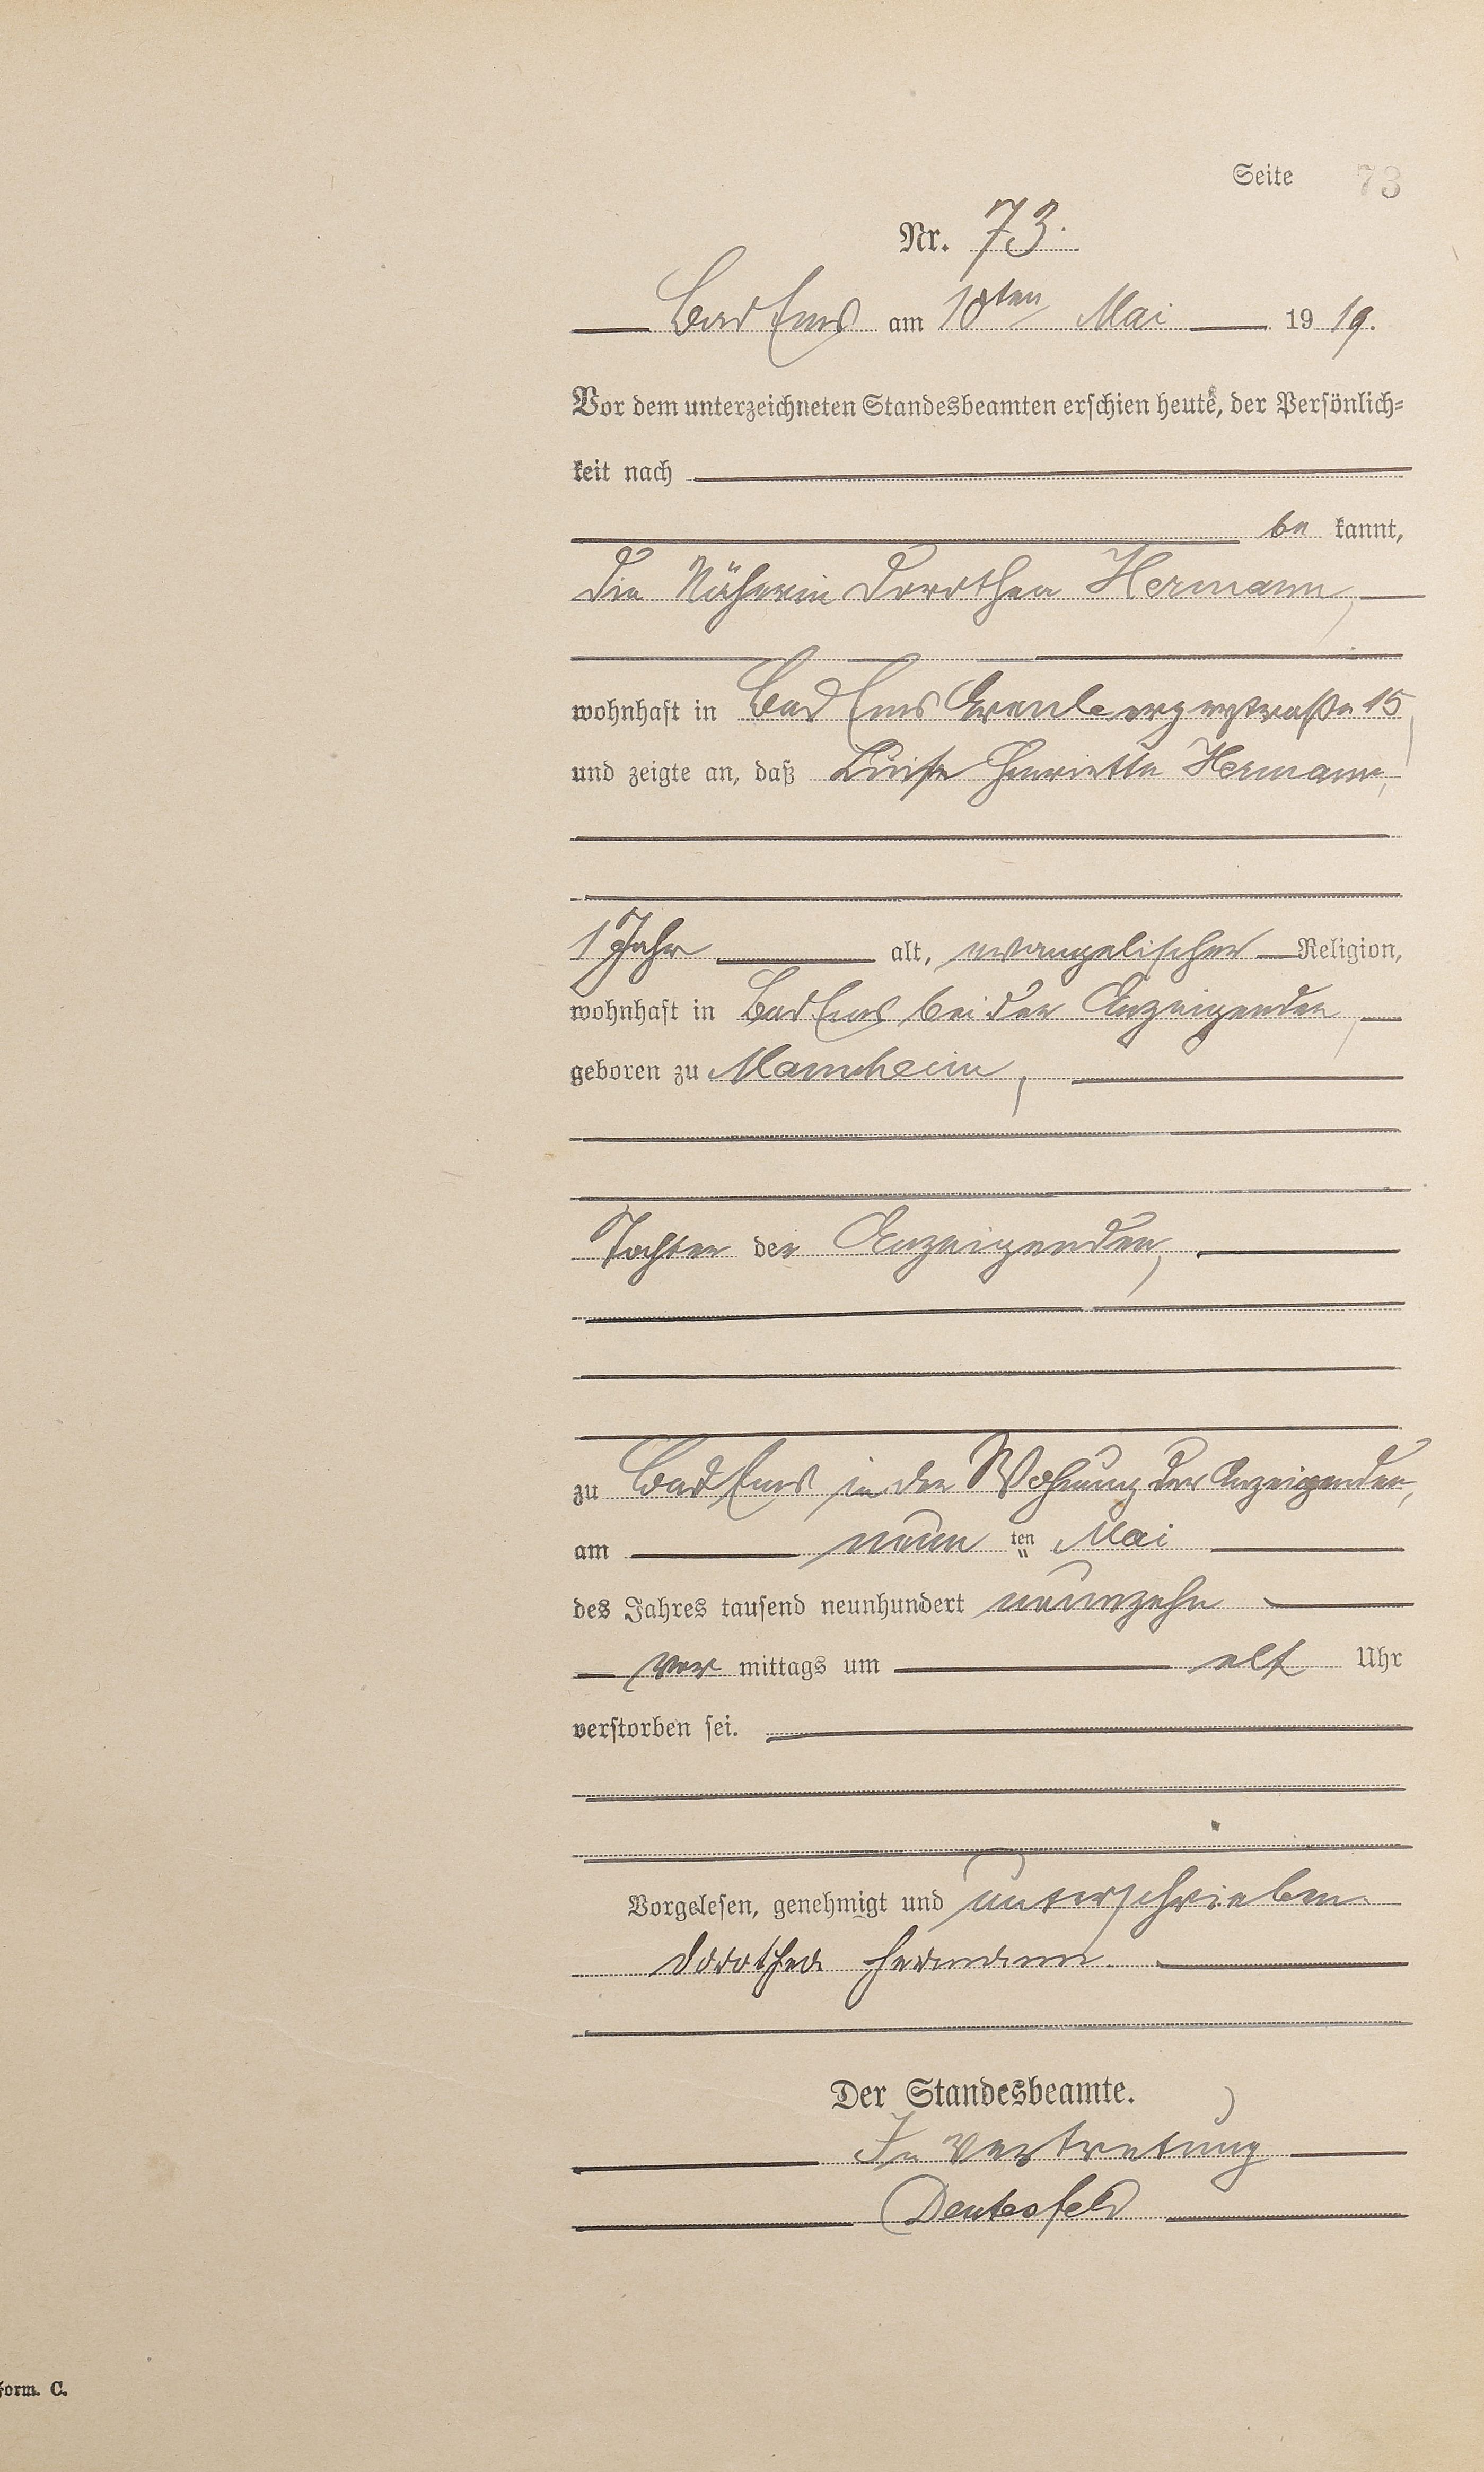 Seite 73
Nr. 73.
Bad Ems am 10ten Mai 19 19.
Vor dem unterzeichneten Standesbeamten erschien heute, der Persönlich=
keit nach
be kannt,
die Näherin Dorothea Hermann,
wohnhaft in Bad Ems 15,
und zeigte an, daß Luise Henriette Hermann,
1 Jahr alt, evangelischer Religion,
wohnhaft in Bad Ems bei der Anzeigenden,
geboren zu Mannheim,
Tochter der Anzeigenden,
zu Bad Ems in der Wohnung der Anzeigenden,
am neun ten Mai
des Jahres tausend neunhundert neunzehn
vor mittags um elf Uhr
verstorben sei.
Vorgelesen, genehmigt und unterschrieben.
Dorothea Hermann.
Der Standesbeamte.
In Vertretung
Form. C.